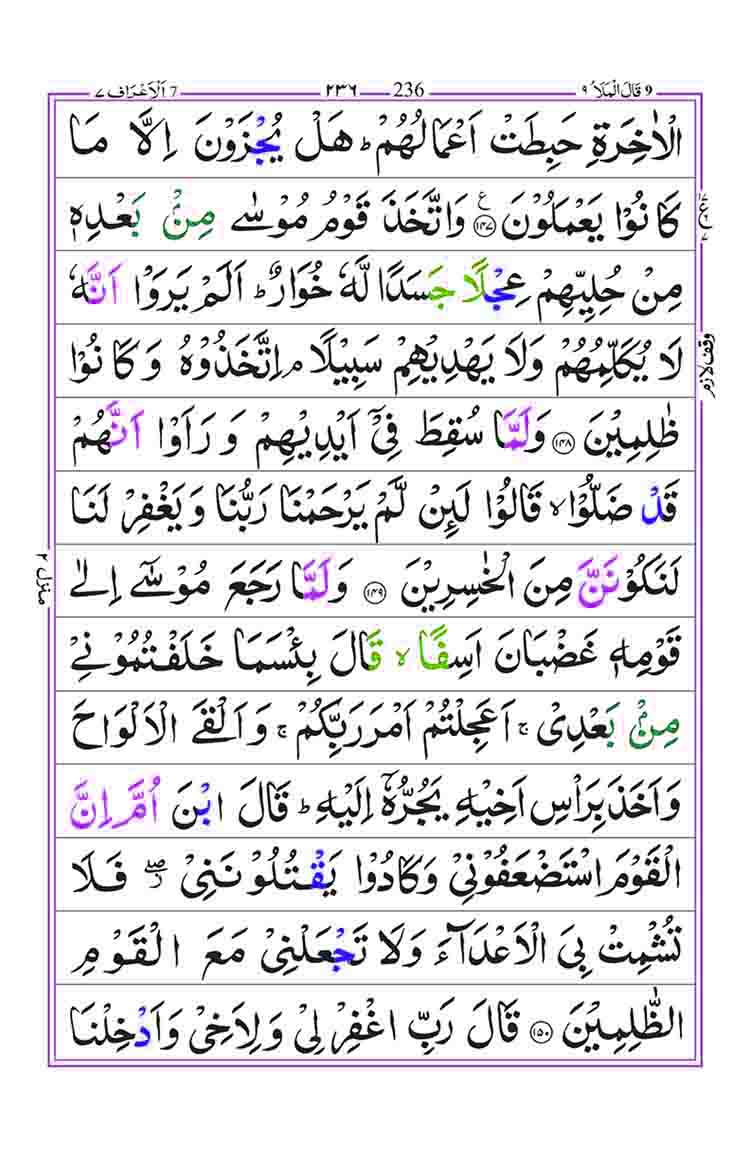 9 قَالَ الْمَلَاُ ٩ 236 ٢٣٦ 7 اَلْاَعْرَاف ٧
الْاٰخِرَةِ حَبِطَتْ اَعْمَالُهُمْ ؕ هَلْ يُجْزَوْنَ اِلَّا مَا
كَانُوْا يَعْمَلُوْنَ ﴿۱۴۷﴾ ع وَاتَّخَذَ قَوْمُ مُوْسٰى مِنْۢ بَعْدِهٖ
مِنْ حُلِيِّهِمْ عِجْلًا جَسَدًا لَّهٗ خُوَارٌ ؕ اَلَمْ يَرَوْا اَنَّهٗ
لَا يُكَلِّمُهُمْ وَلَا يَهْدِيْهِمْ سَبِيْلًا ۘ اِتَّخَذُوْهُ وَكَانُوْا
ظٰلِمِيْنَ ﴿۱۴۸﴾ وَلَمَّا سُقِطَ فِىْۤ اَيْدِيْهِمْ وَرَاَوْا اَنَّهُمْ
قَدْ ضَلُّوْا ۙ قَالُوْا لَئِنْ لَّمْ يَرْحَمْنَا رَبُّنَا وَيَغْفِرْ لَنَا
لَنَكُوْنَنَّ مِنَ الْخٰسِرِيْنَ ﴿۱۴۹﴾ وَلَمَّا رَجَعَ مُوْسٰۤى اِلٰى
قَوْمِهٖ غَضْبَانَ اَسِفًا ۙ قَالَ بِئْسَمَا خَلَفْتُمُوْنِىْ
مِنْۢ بَعْدِىْ ۚ اَعَجِلْتُمْ اَمْرَ رَبِّكُمْ ۚ وَاَلْقَى الْاَلْوَاحَ
وَاَخَذَ بِرَاْسِ اَخِيْهِ يَجُرُّهٗۤ اِلَيْهِ ؕ قَالَ ابْنَ اُمَّ اِنَّ
الْقَوْمَ اسْتَضْعَفُوْنِىْ وَكَادُوْا يَقْتُلُوْنَنِىْ ۖ فَلَا
تُشْمِتْ بِىَ الْاَعْدَآءَ وَلَا تَجْعَلْنِىْ مَعَ الْقَوْمِ
الظّٰلِمِيْنَ ﴿۱۵۰﴾ قَالَ رَبِّ اغْفِرْ لِىْ وَلِاَخِىْ وَاَدْخِلْنَا
وقف لازم
منزل ٢